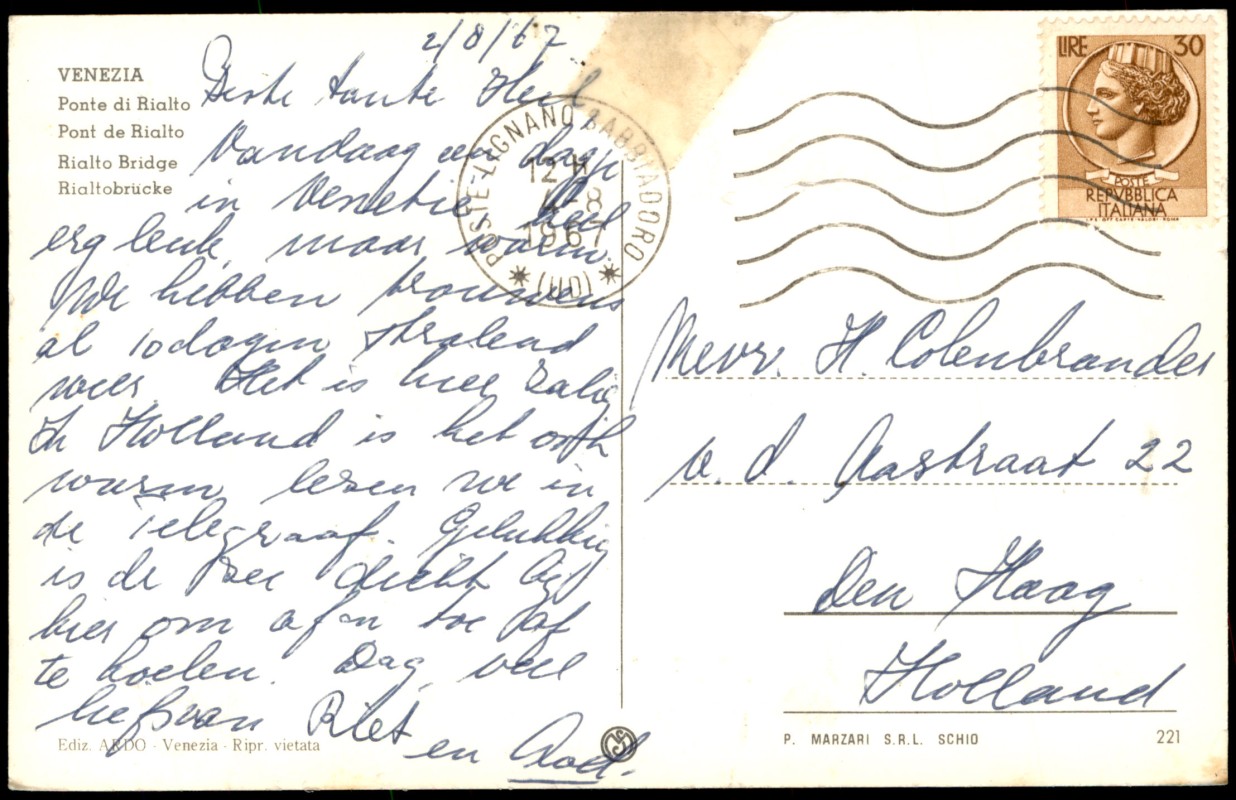 2/8/67
VENEZIA
Ponte di Rialto
Pont de Rialto
Rialto Bridge
Rialtobrücke
Beste tante Heil
Vandaag een dagje
in Venetië heel
erg leuk, maar warm.
We hebben trouwens
al 10 dagen stralend
weer. Het is hier zalig
In Holland is het ook
warm lezen we in
de Telegraaf. Gelukkig
is de zee dicht bij
hier om af en toe af
te koelen. Dag, veel
liefs van Riet
en Aad.
Ediz. ARDO - Venezia - Ripr. vietata
POSTE-LIGNANO SABBIADORO
12 H
8
1967
(UD)
LIRE 30
POSTE
REPVBBLICA
ITALIANA
I.P.S. OFF. CARTE-VALORI ROMA
Mevr. H. Colenbrander
v. d. Aastraat 22
Den Haag
Holland
P. MARZARI S.R.L. SCHIO
221